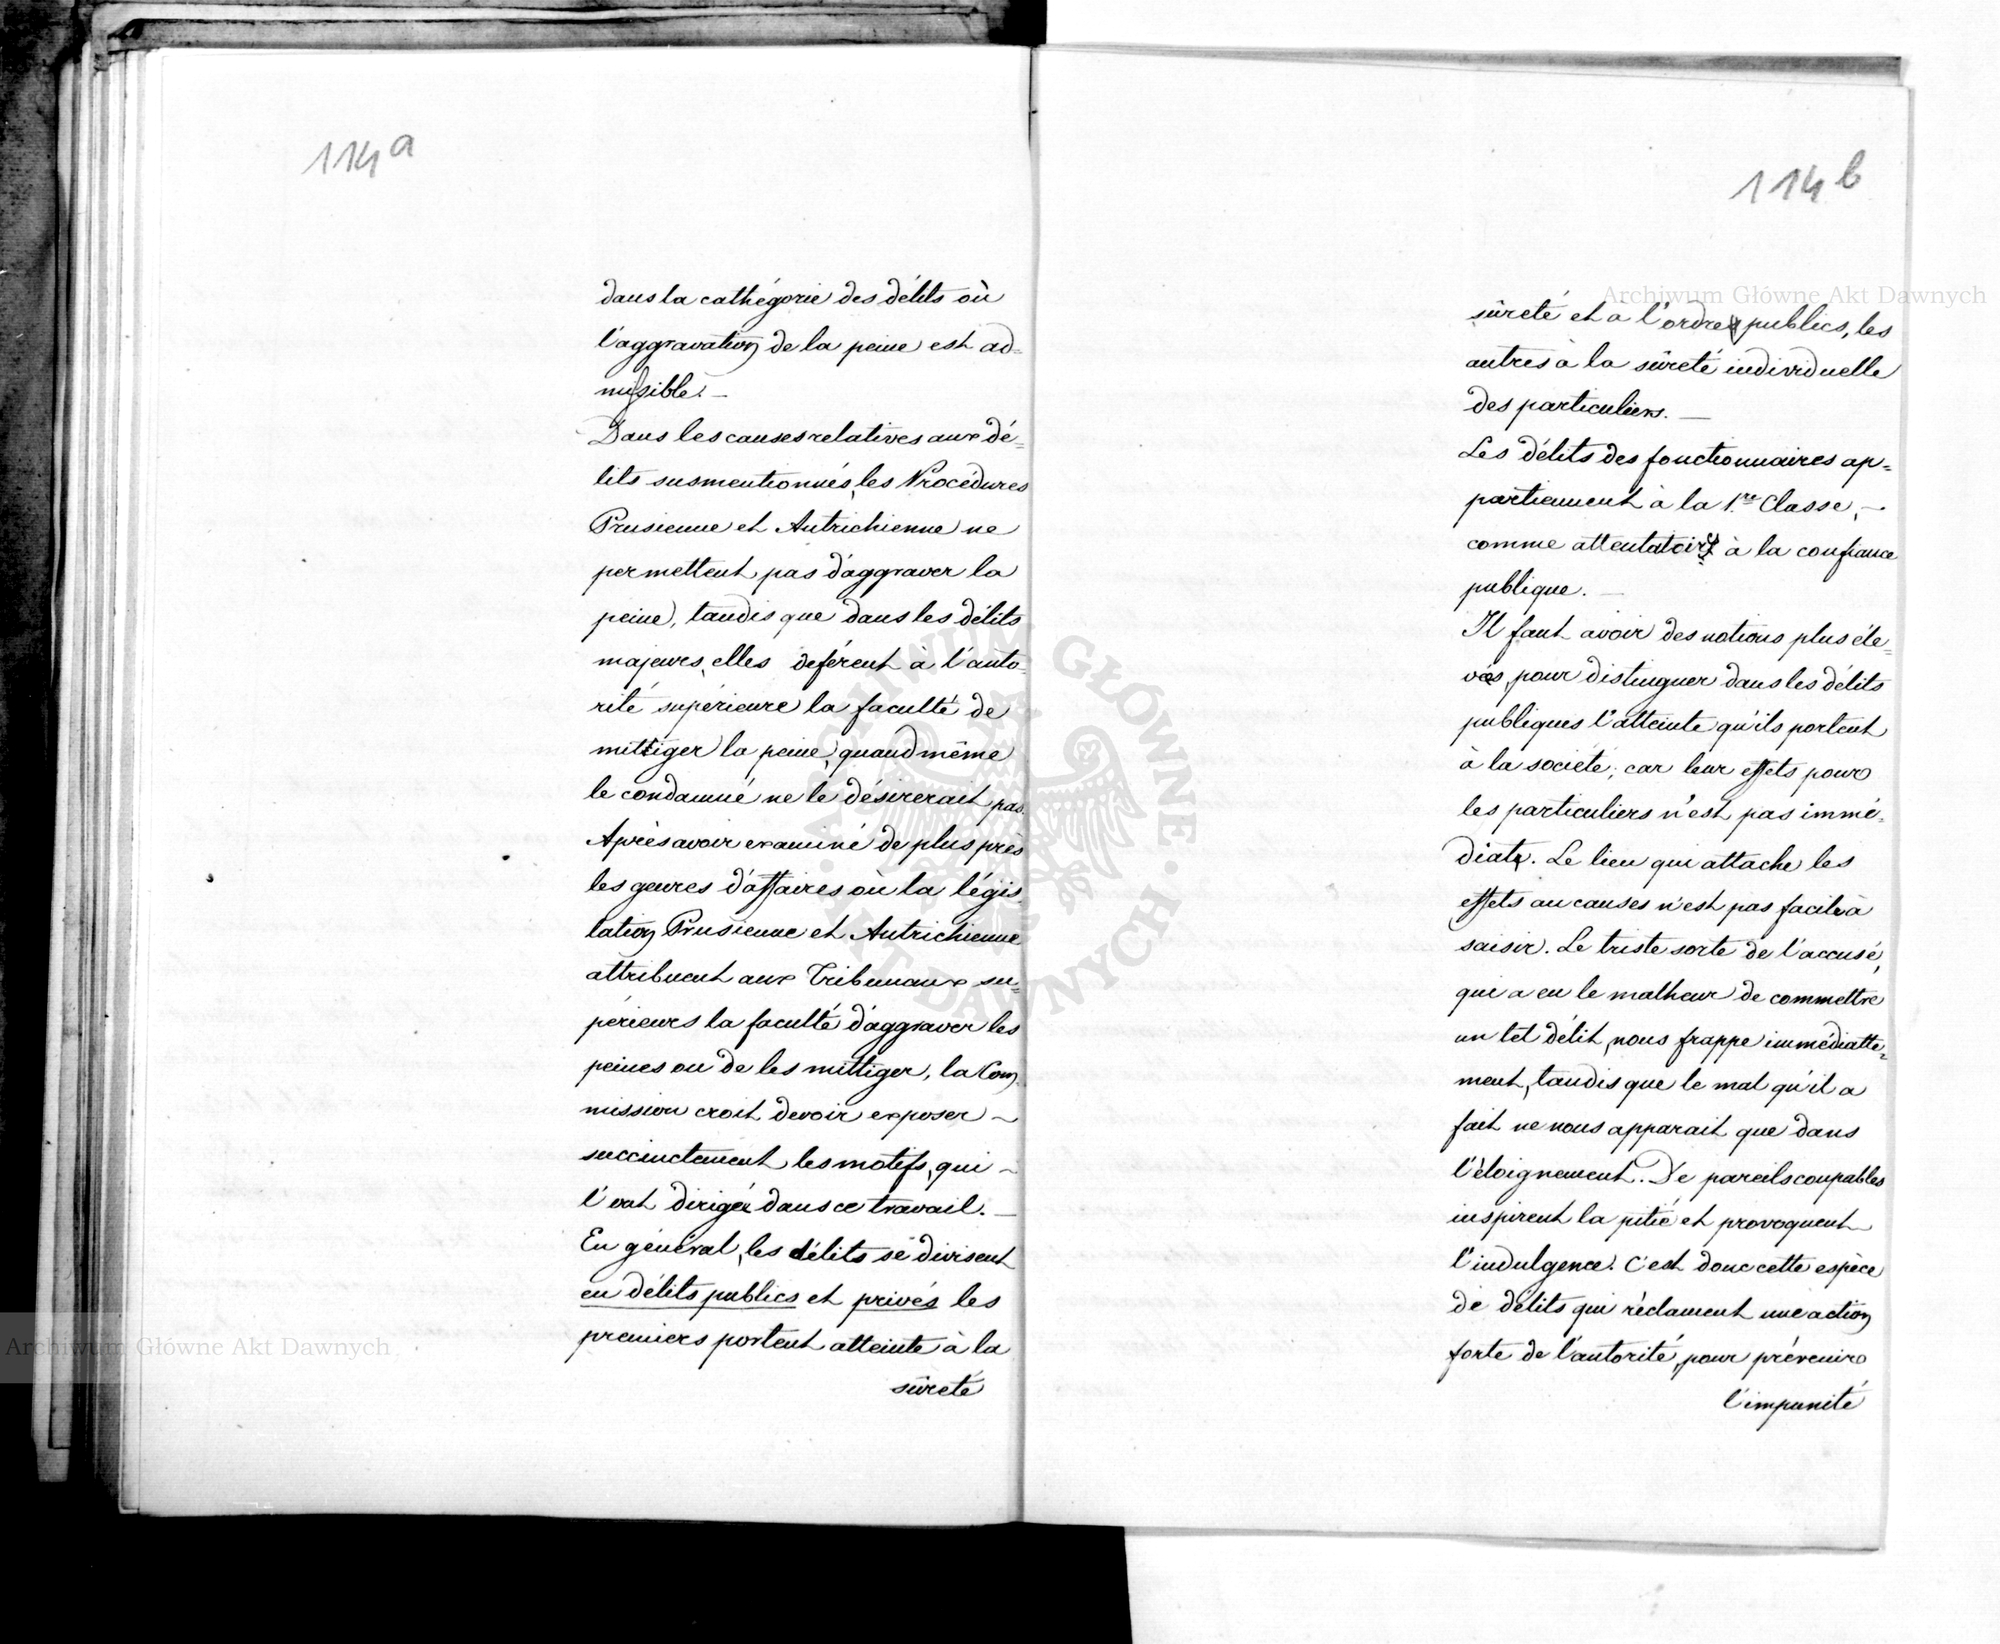 114a
dans la cathégorie des délits où
l'aggravation de la peine est ad=
missible. —
Dans les causes relatives aux dé=
lits susmentionnés, les Procédures
Prusienne et Autrichienne ne
permettent pas d'aggraver la
peine, tandis que dans les délits
majeurs, elles deférent à l'auto-
rité supérieure la faculté de
mittiger la peine, quand même
le condamné ne le désirerait pas.
Après avoir examiné de plus près
les genres d'affaires où la légis-
lation Prusienne et Autrichienne
attribuent aux Tribunaux su=
périeurs la faculté d'aggraver les
peines ou de les mittiger, la Com
mission croit devoir exposer ~
succinctement les motifs, qui ~
l'ont dirigée dans ce travail. —
En général, les délits se divisent
en délits publics et privés les
premiers portent atteinte à la
sûreté
114b
sûreté et a l'ordre publics, les
autres à la sûreté individuelle
des particuliers. —
Les délits des fonctionnaires ap=
partiennent à la 1.re Classe, ~
comme attentatoires à la confiance
publique. —
Il faut avoir des notions plus éle=
vées, pour distinguer dans les délits
publiques l'atteinte qu'ils portent
à la société; car leur effets pour
les particuliers n'est pas immé-
diate. Le lien qui attache les
effets au causes n'est pas facile à
saisir. Le triste sorte de l'accusé,
qui a eu le malheur de commettre
un tel délit, nous frappe immédiatte=
ment, tandis que le mal qu'il a
fait ne nous apparait que dans
l'éloignement. De pareils coupables
inspirent la pitié et provoquent
l'indulgence. C'est donc cette espèce
de délits qui réclament une action
forte de l'autorité, pour prévenir
l'impunité
Archiwum Główne Akt Dawnych
Archiwum Główne Akt Dawnych
ARCHIWUM GŁÓWNE · AKT DAWNYCH ·